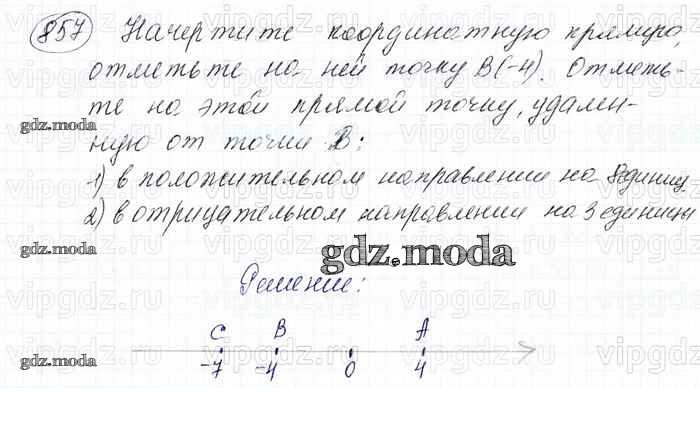 857 Начертите координатную прямую,
отметьте на ней точку В(-4). Отметь-
те на этой прямой точку, удален-
gdz.moda
ную от точки В:
1) в положительном направлении на 8 единиц
2) в отрицательном направлении на 3 единицы
gdz.moda
gdz.moda
Решение:
С В А
gdz.moda
-7 -4 0 4